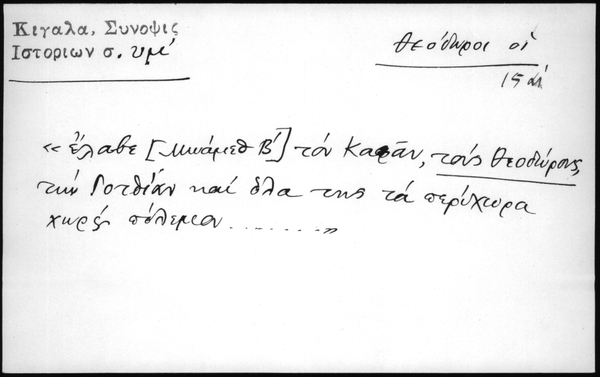 Κιγαλα, Συνοψις
Ιστοριων σ. υμε´
Θεόδωροι οἱ
15 αἰ
« ἔλαβε [Μωάμεθ Β´] τόν Καφᾶν, τούς Θεοδώρους,
τήν Γοτθίαν καί ὅλα της τά περίχωρα
χωρίς πόλεμον ........»